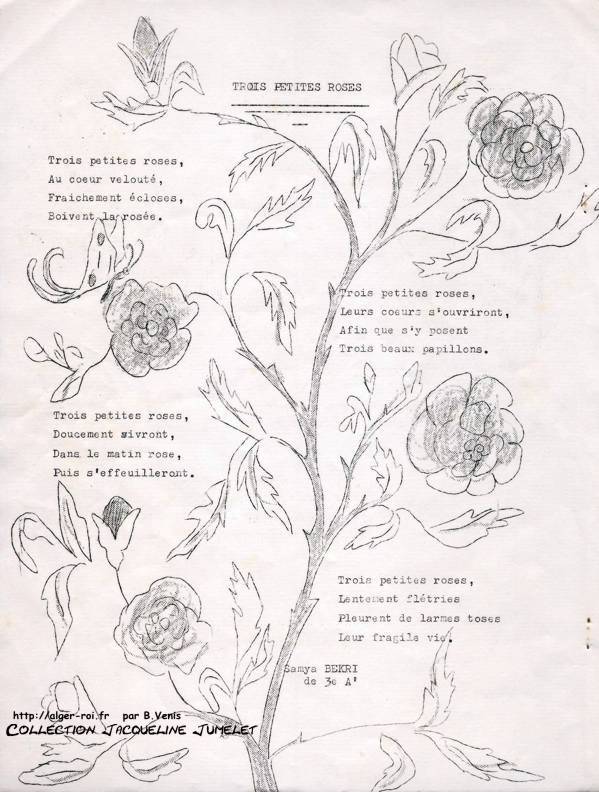 TROIS PETITES ROSES
Trois petites roses,
Au coeur velouté,
Fraichement écloses,
Boivent la rosée.
Trois petites roses,
Leurs coeurs s'ouvriront,
Afin que s'y posent
Trois beaux papillons.
Trois petites roses,
Doucement vivront,
Dans le matin rose,
Puis s'effeuilleront.
Trois petites roses,
Lentement flétries
Pleurent de larmes toses
Leur fragile vie.
Samya BEKRI
de 3e A'
http://alger-roi.fr par B.Venis
COLLECTION JACQUELINE JUMELET